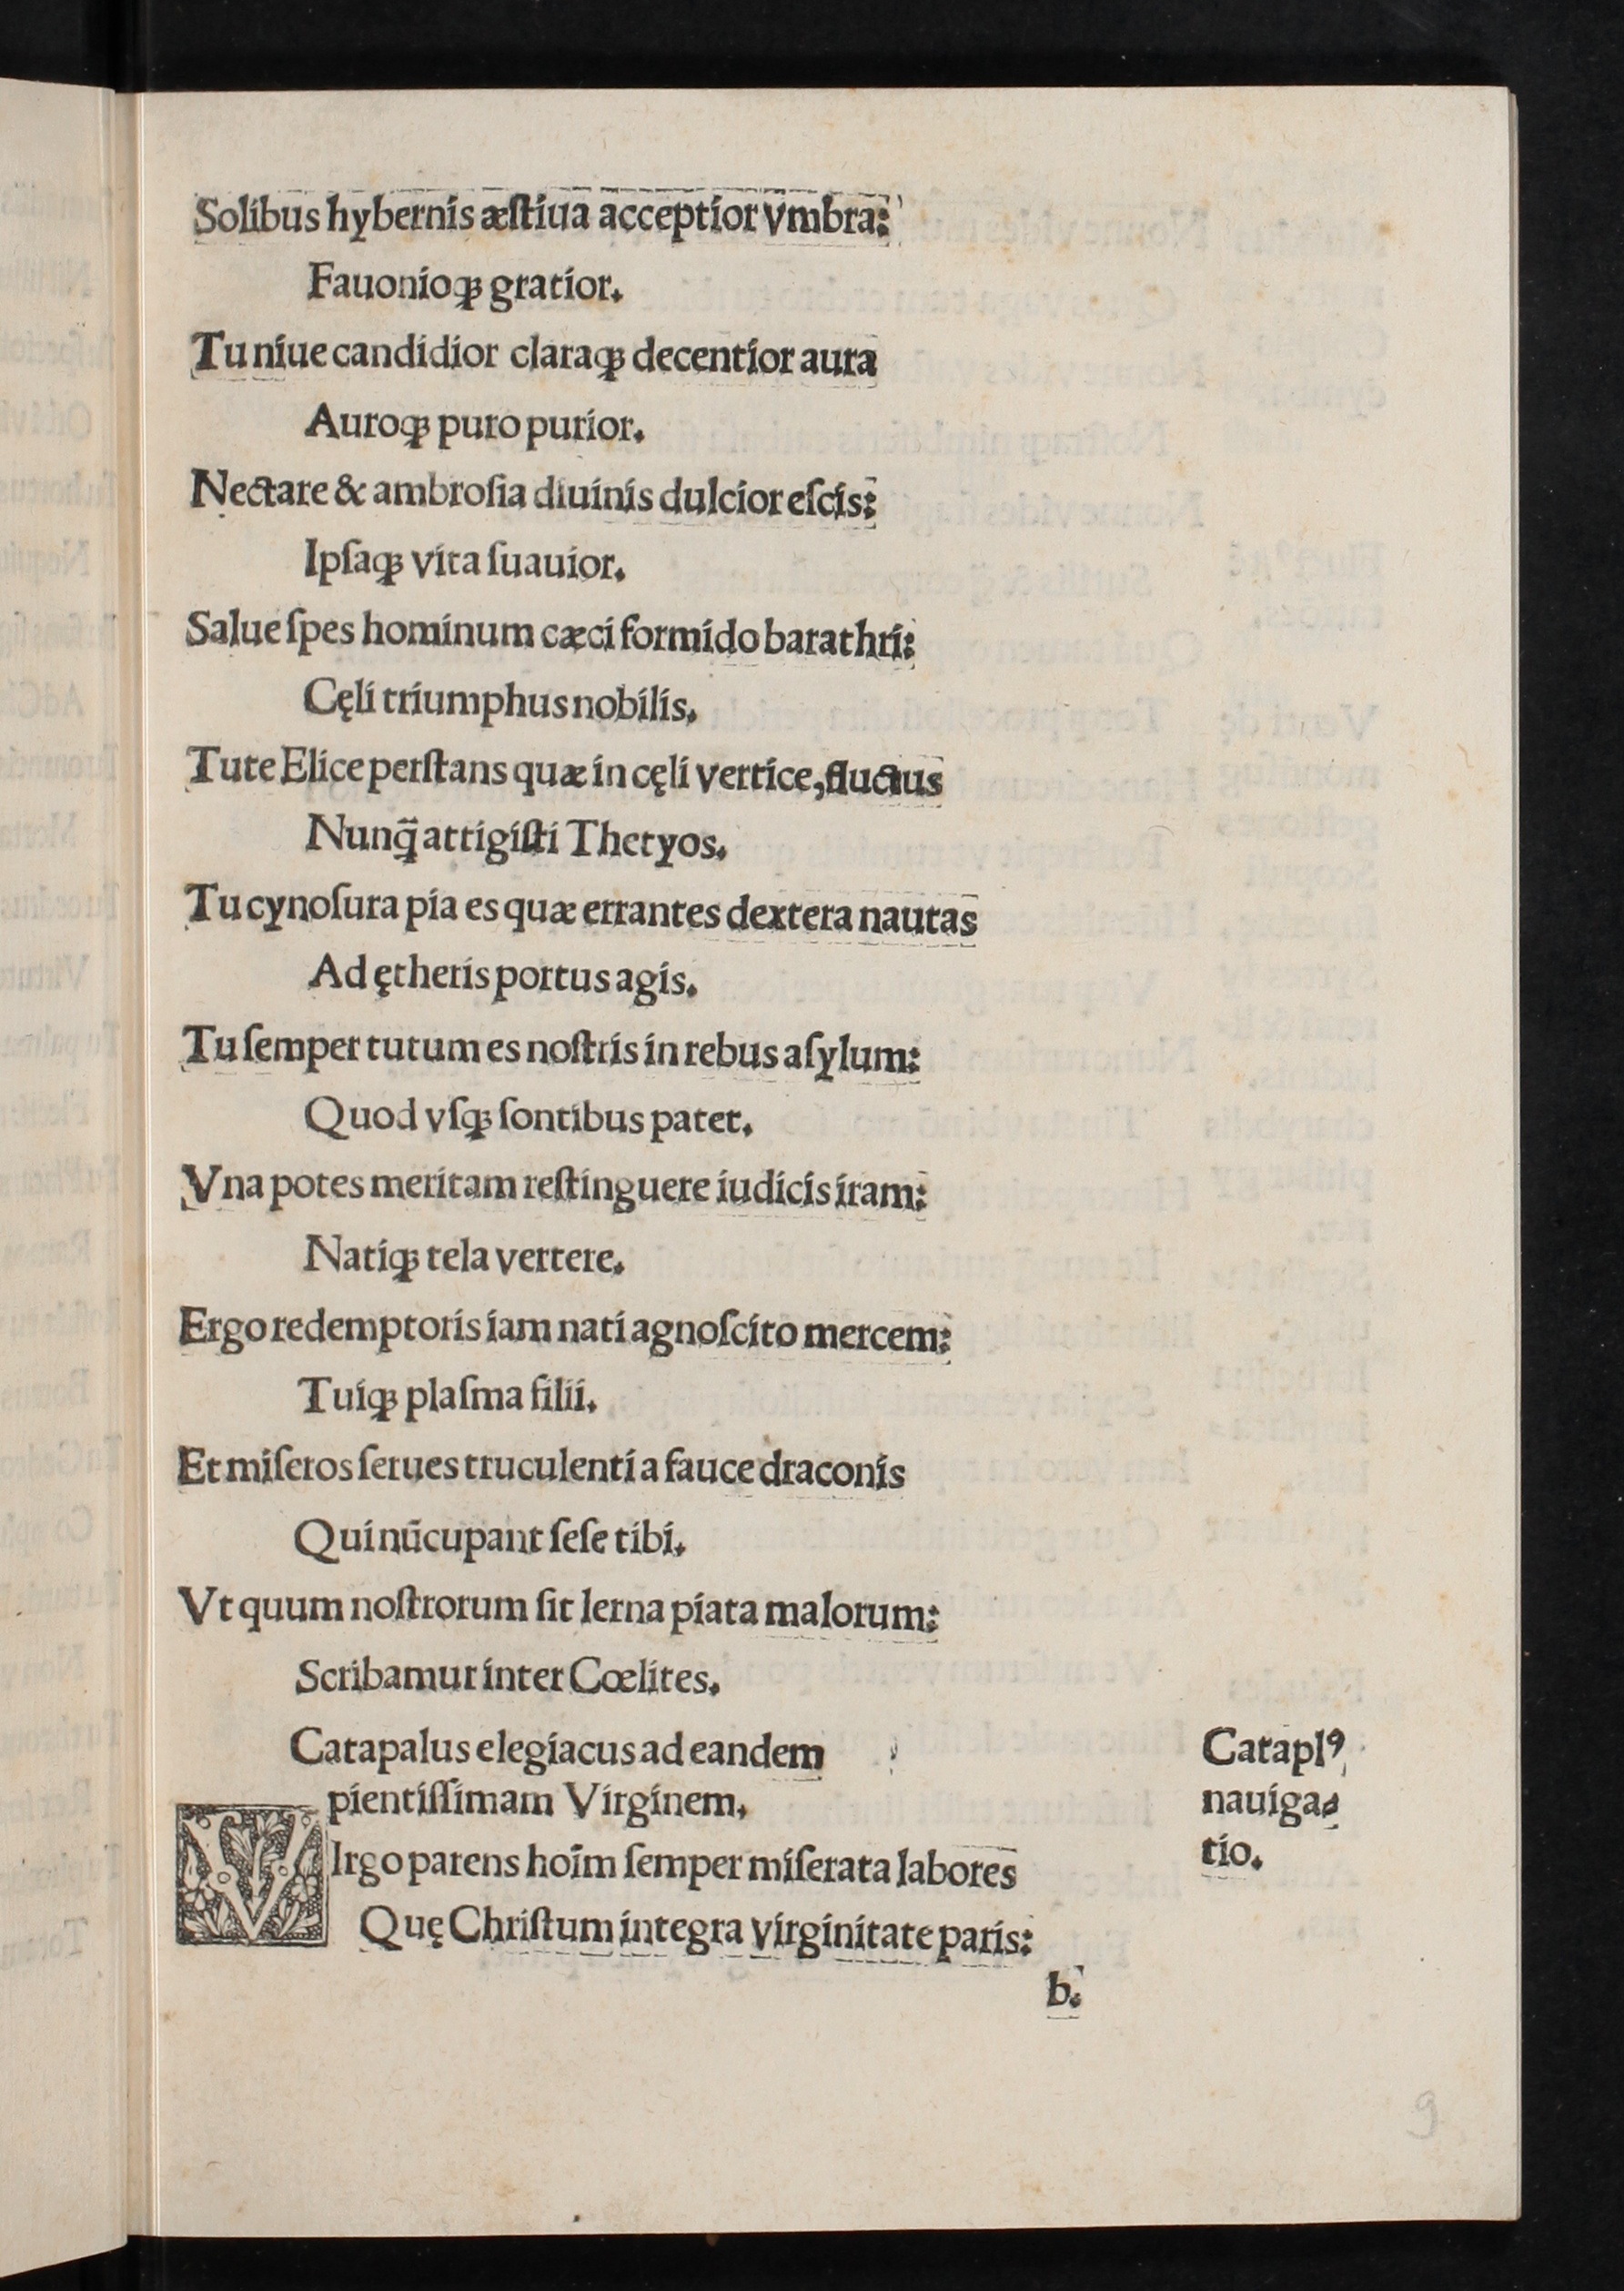 Solibus hybernis æſtiua acceptior vmbra:
Fauonioqꝫ gratior.
Tu niue candidior claraqꝫ decentior aura
Auroqꝫ puro purior.
Nectare & ambroſia diuinis dulcior eſcis:
Ipſaqꝫ vita ſuauior.
Salue ſpes hominum cæci formido barathri:
Cęli triumphus nobilis.
Tute Elice perſtans quæ in cęli vertice, fluctus
Nunq̃ attigiſti Thetyos.
Tu cynoſura pia es quæ errantes dextera nautas
Ad ętheris portus agis.
Tu ſemper tutum es noſtris in rebus aſylum:
Quod vſqꝫ ſontibus patet.
Vna potes meritam reſtinguere iudicis iram:
Natiqꝫ tela vertere.
Ergo redemptoris iam nati agnoſcito mercem:
Tuiqꝫ plaſma filii.
Et miſeros ſerues truculenti a fauce draconis
Qui nūcupant ſeſe tibi.
Vt quum noſtrorum ſit lerna piata malorum:
Scribamur inter Cœlites.
Catapalus elegiacus ad eandem
pientiſſimam Virginem.
VIrgo parens hoīm ſemper miſerata labores
Quę Chriſtum integra virginitate paris:
b.
Cataplꝰ
nauiga⸗
tio.
9